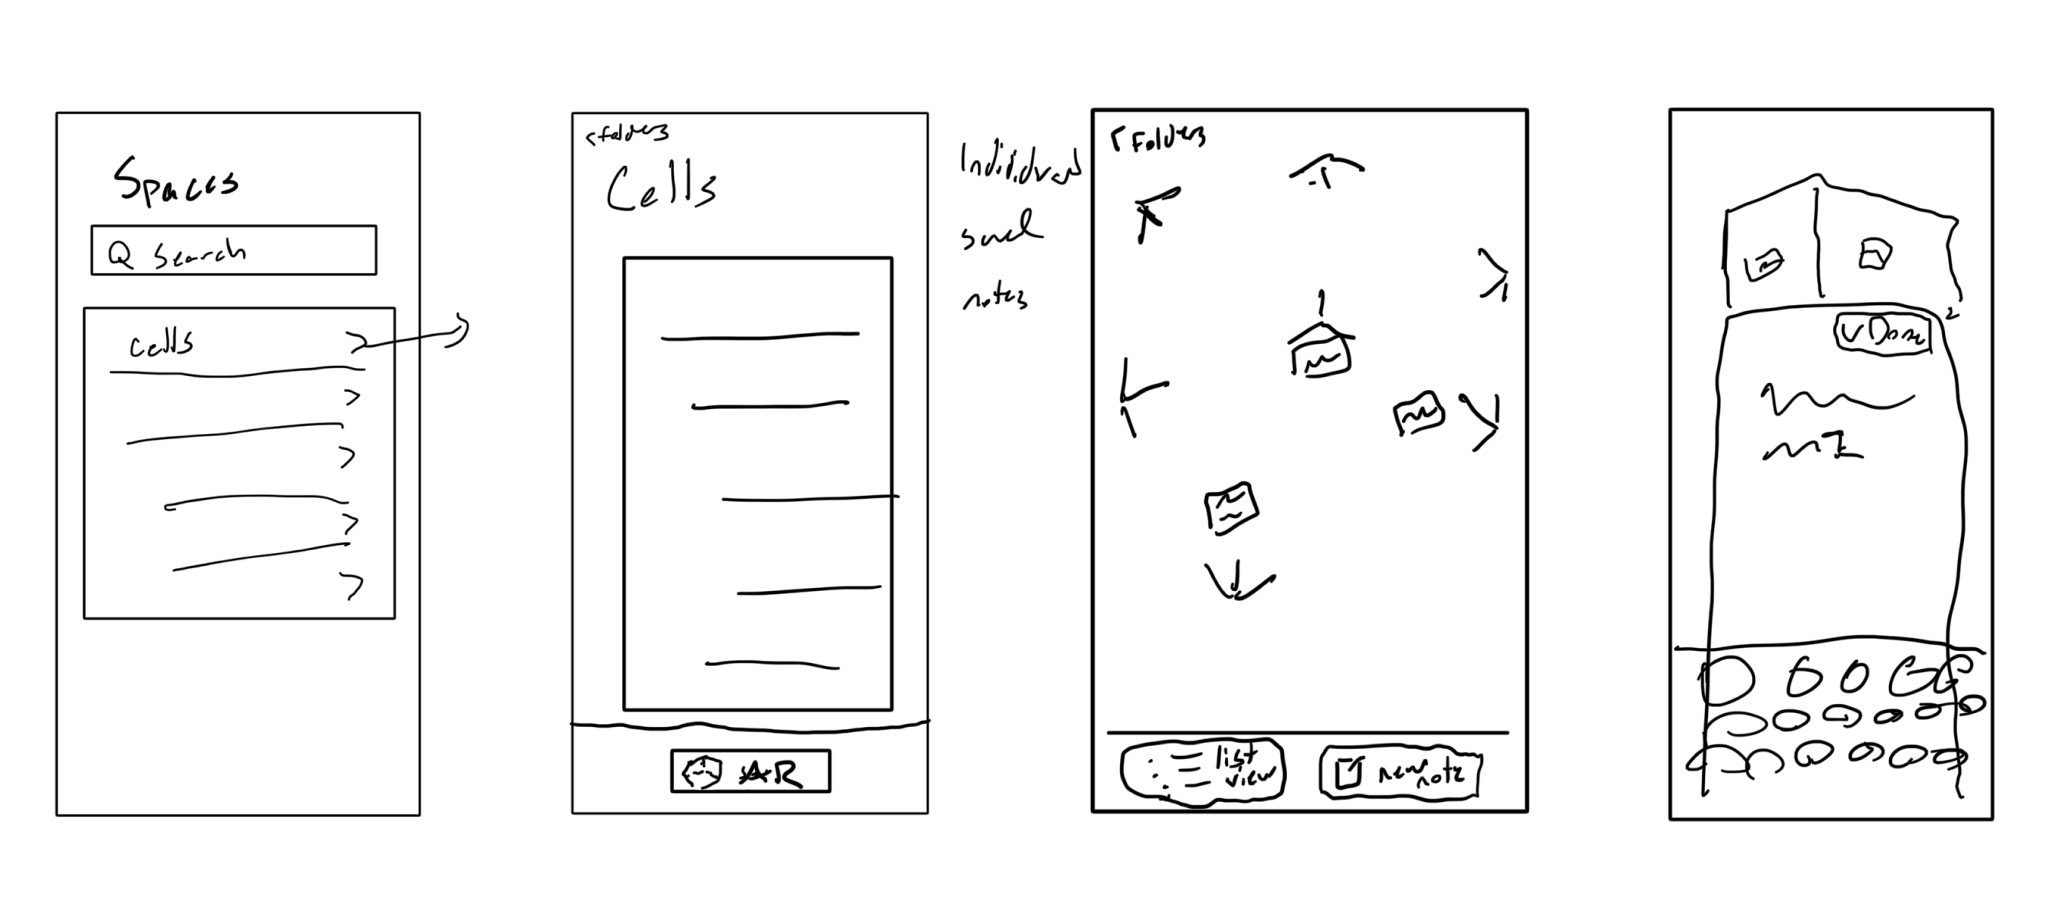 Spaces
Search
Cells
<folders
Cells
Individual
saved
notes
<Folders
list
view
new
note
Done